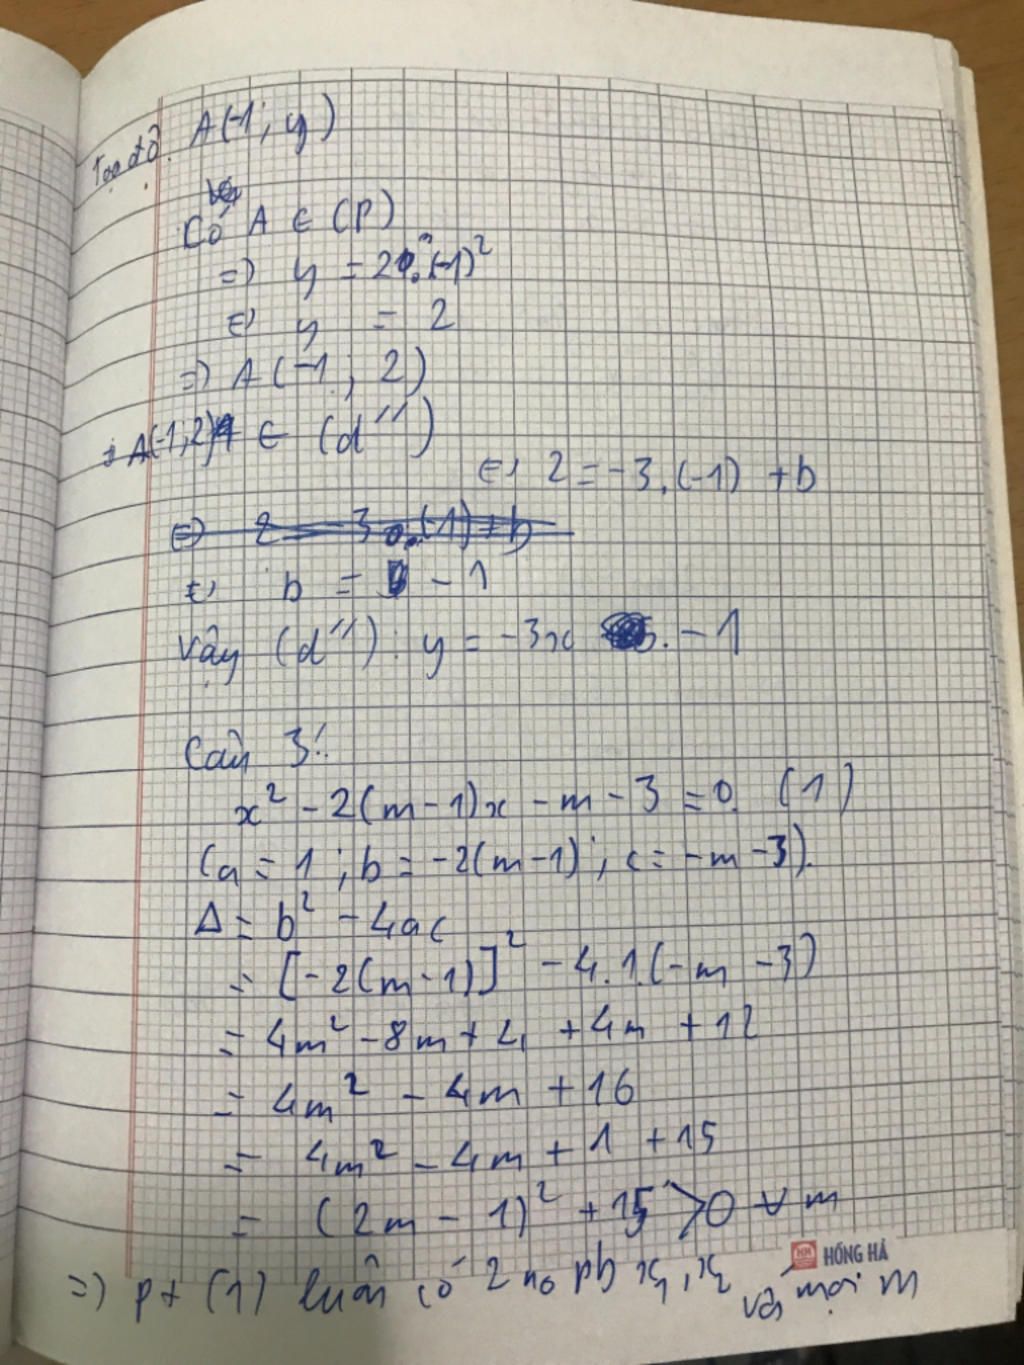 Toạ độ A(-1; y)
Có A ∈ (P)
=> y = 2.(-1)²
<=> y = 2
=> A(-1; 2)
A(-1;2) ∈ (d'')
<=> 2 = -3.(-1) + b
<=> 2 = -3.(-1) + b
<=> b = -1
Vậy (d''): y = -3x - 1
Câu 3:
x² - 2(m-1)x - m - 3 = 0 (1)
(a = 1; b = -2(m-1); c = -m-3).
Δ = b² - 4ac
= [-2(m-1)]² - 4.1.(-m-3)
= 4m² - 8m + 4 + 4m + 12
= 4m² - 4m + 16
= 4m² - 4m + 1 + 15
= (2m - 1)² + 15 > 0 ∀ m
HỒNG HÀ
=> pt (1) luôn có 2 no pb x₁, x₂ với mọi m